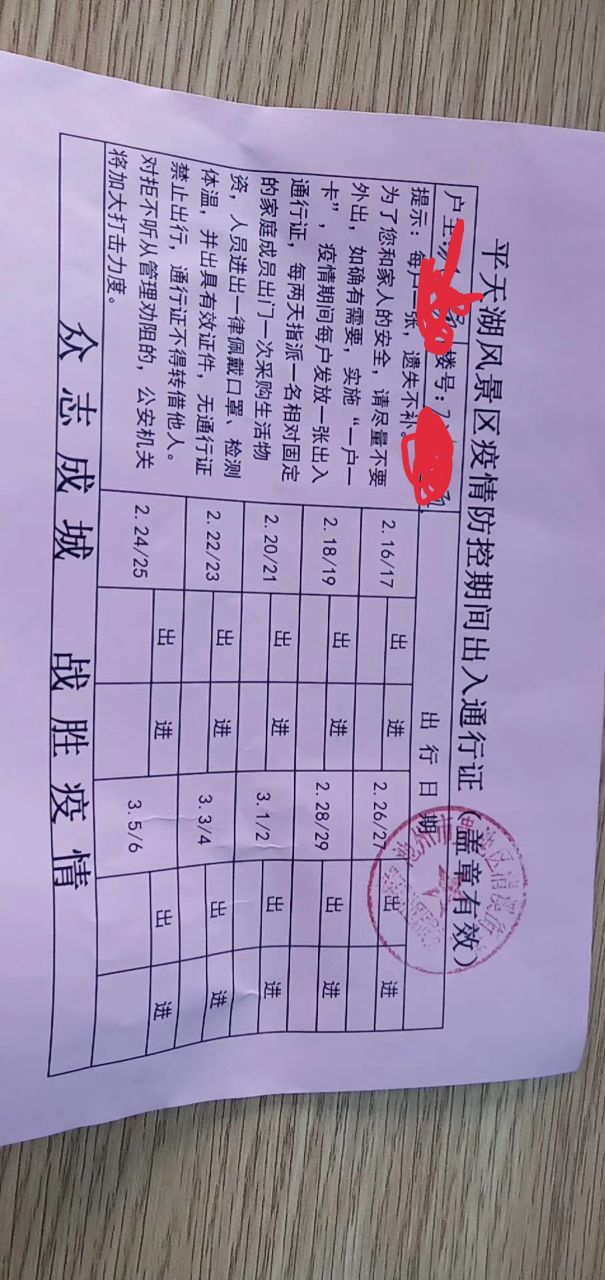 平天湖风景区疫情防控期间出入通行证（盖章有效）
户主 楼号：
出行日期
提示：每户一张，遗失不补。
为了您和家人的安全，请尽量不要
外出，如确有需要，实施“一户一
卡”，疫情期间每户发放一张出入
通行证，每两天指派一名相对固定
的家庭成员出门一次采购生活物
资，人员进出一律佩戴口罩、检测
体温，并出具有效证件，无通行证
禁止出行，通行证不得转借他人。
对拒不听从管理劝阻的，公安机关
将加大打击力度。
2.16/17 出 进 2.26/27 出 进
2.18/19 出 进 2.28/29 出 进
2.20/21 出 进 3.1/2 出 进
2.22/23 出 进 3.3/4 出 进
2.24/25 出 进 3.5/6 出 进
众志成城 战胜疫情